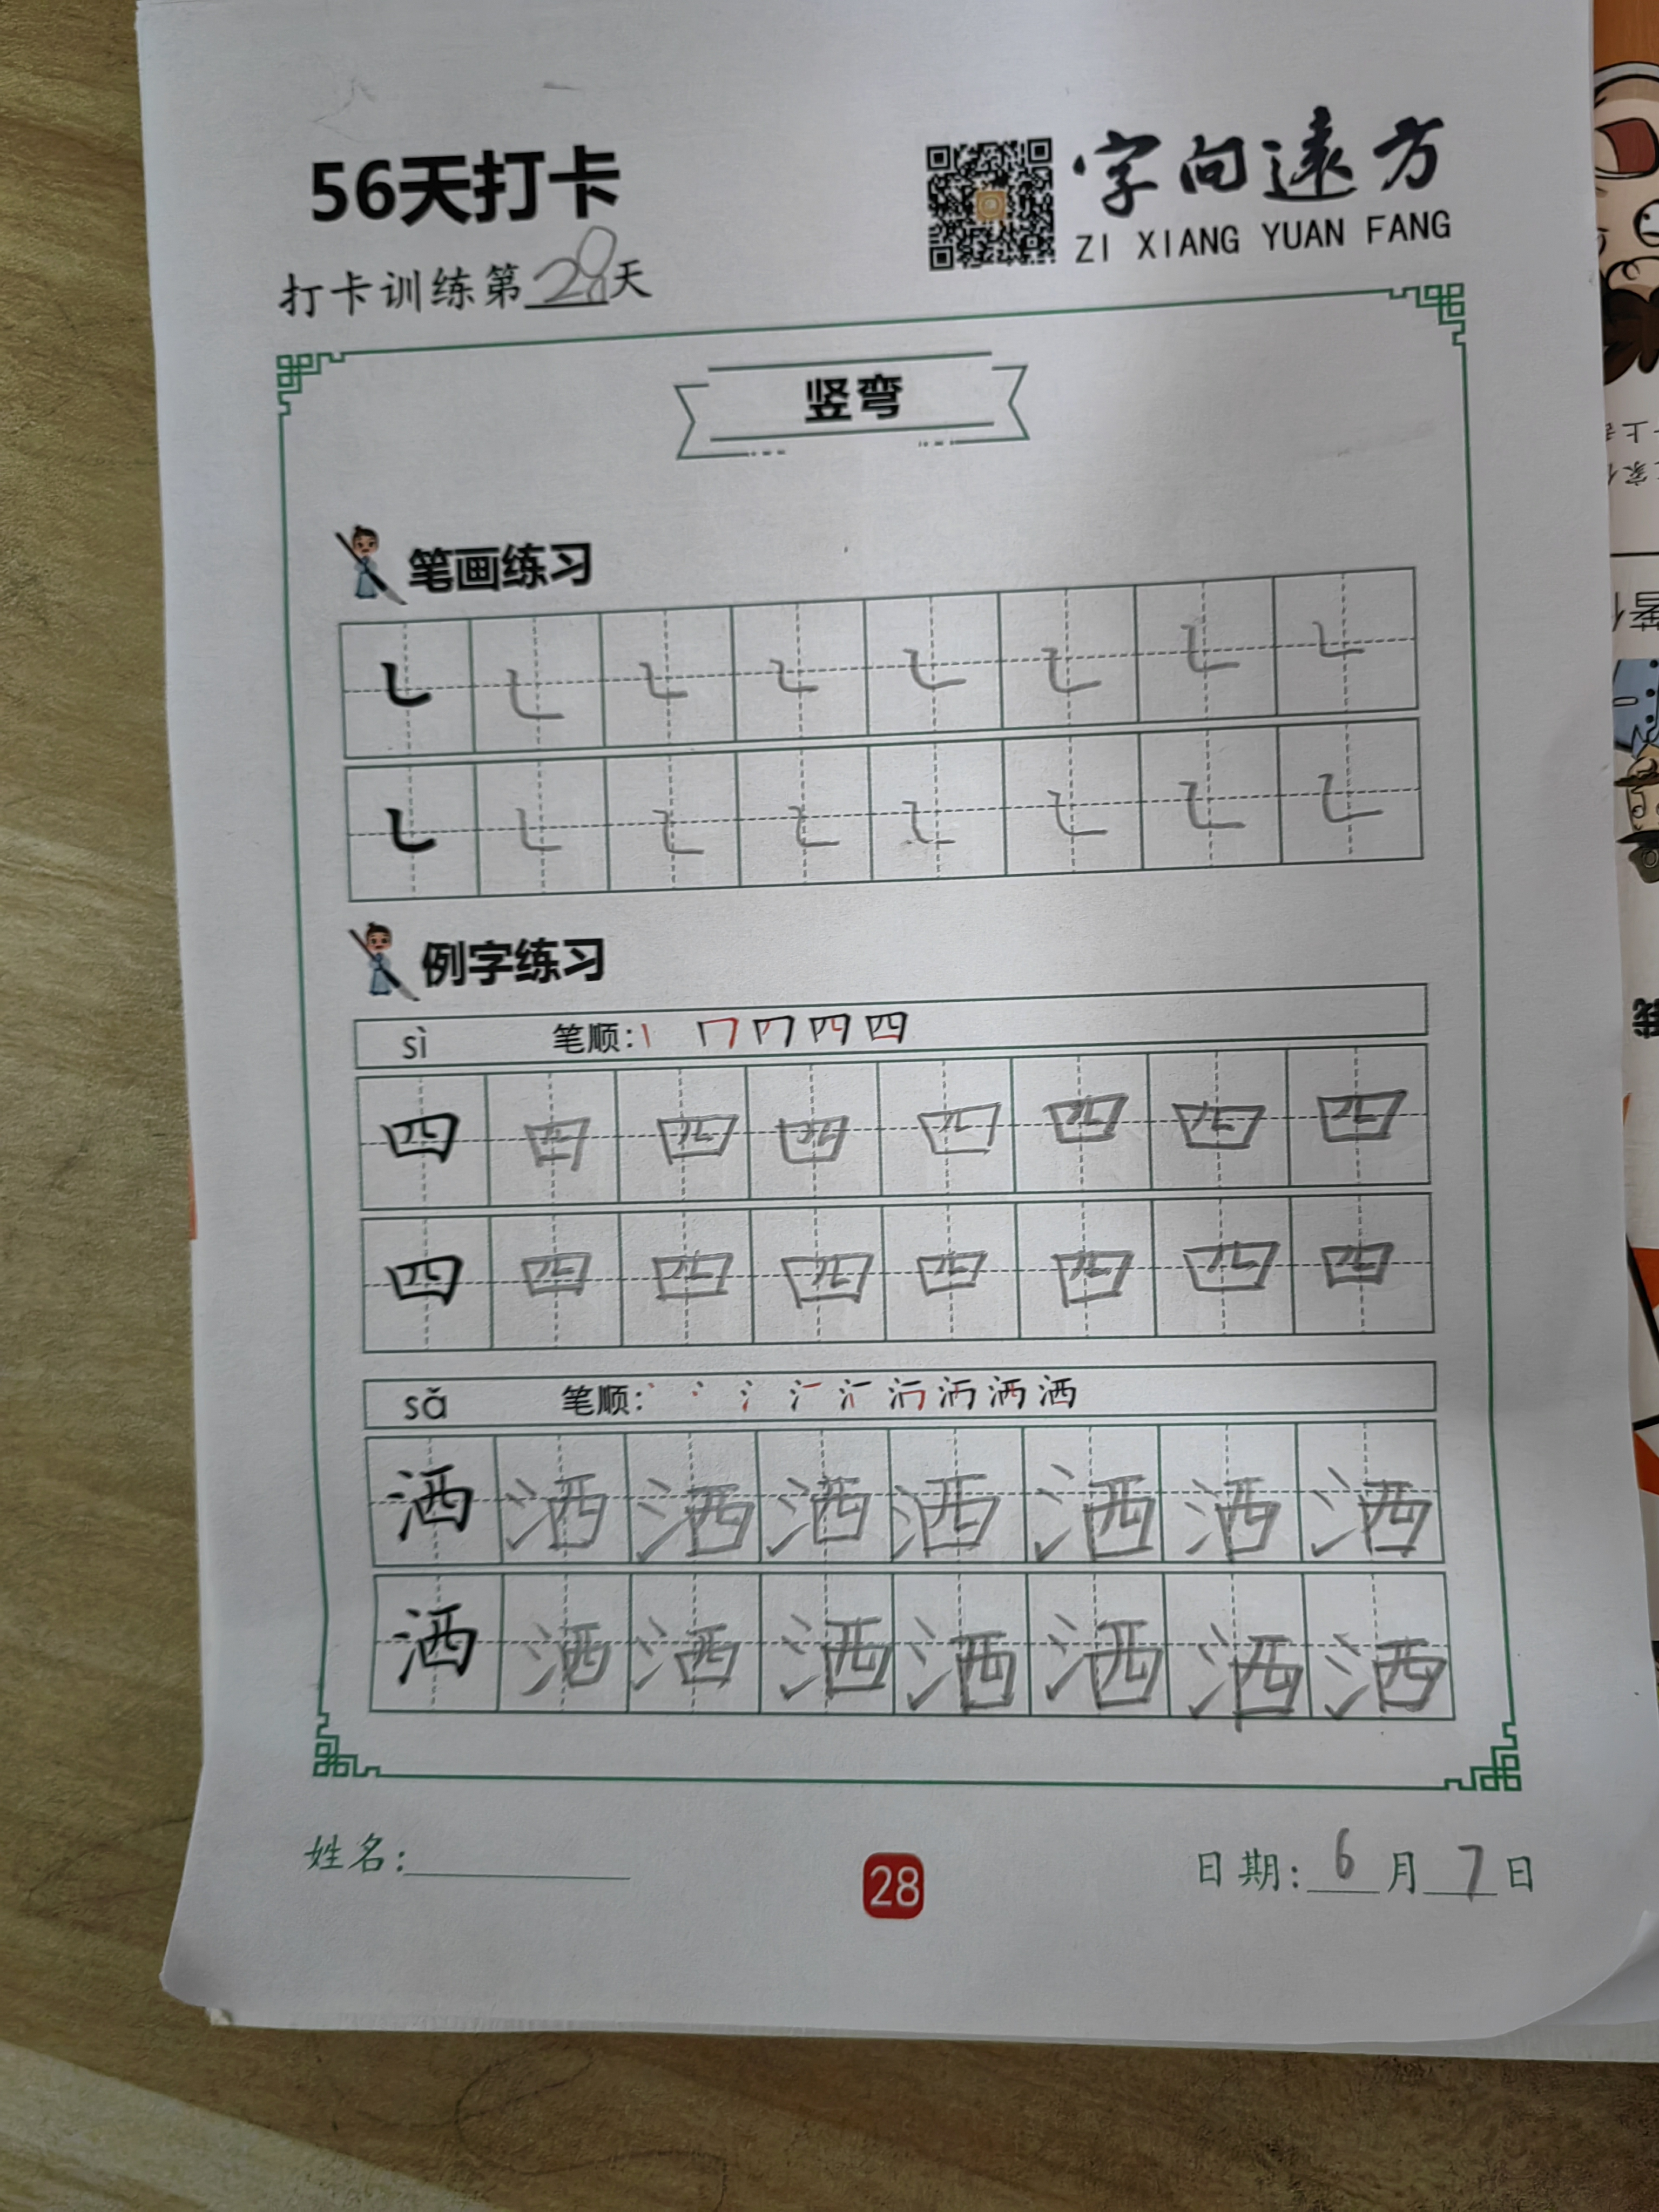 56天打卡
字向遠方
ZI XIANG YUAN FANG
打卡训练第28天
竖弯
笔画练习
㇄ ㇄ ㇄ ㇄ ㇄ ㇄ ㇄ ㇄
㇄ ㇄ ㇄ ㇄ ㇄ ㇄ ㇄ ㇄
例字练习
sì 笔顺:
四 四 四 四 四 四 四 四
四 四 四 四 四 四 四 四
sǎ 笔顺: 洒
洒 洒 洒 洒 洒 洒 洒 洒
洒 洒 洒 洒 洒 洒 洒 洒
姓名:
28
日期: 6月7日